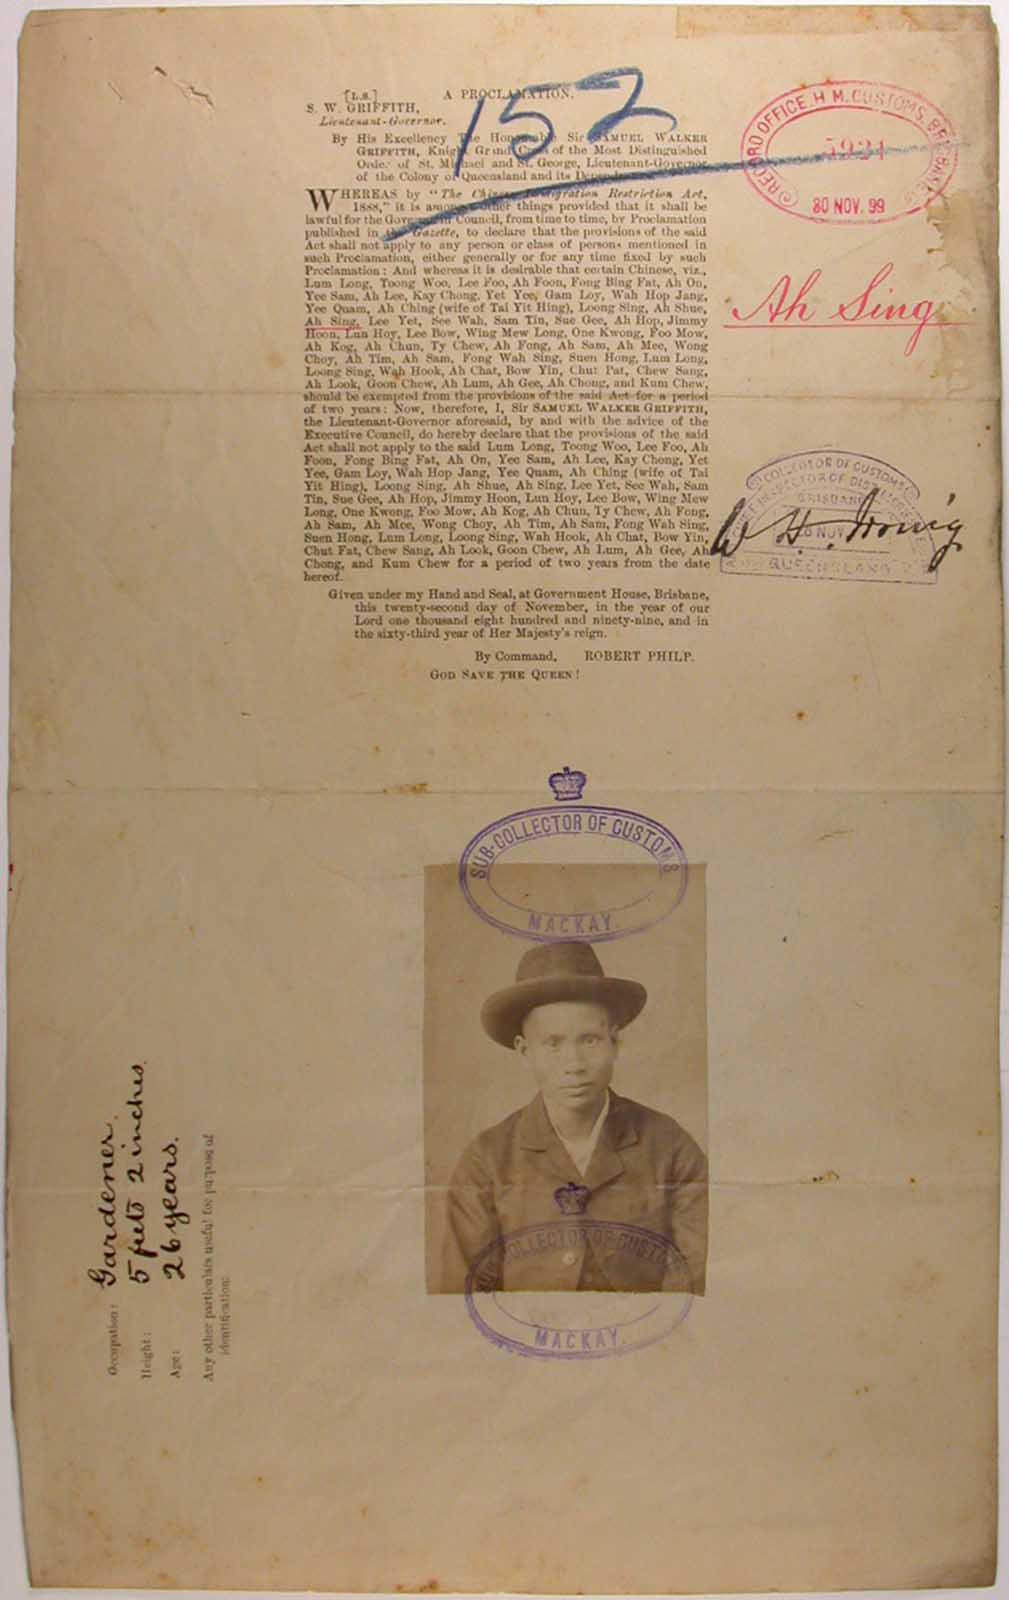 152
[L.S.] A PROCLAMATION.
S. W. GRIFFITH,
Lieutenant-Governor.
By His Excellency The Honourable Sir SAMUEL WALKER
GRIFFITH, Knight Grand Cross of the Most Distinguished
Order of St. Michael and St. George, Lieutenant-Governor
of the Colony of Queensland and its Dependencies.
WHEREAS by "The Chinese Immigration Restriction Act,
1888," it is amongst other things provided that it shall be
lawful for the Governor in Council, from time to time, by Proclamation
published in the Gazette, to declare that the provisions of the said
Act shall not apply to any person or class of persons mentioned in
such Proclamation, either generally or for any time fixed by such
Proclamation: And whereas it is desirable that certain Chinese, viz.,
Lum Long, Toong Woo, Lee Foo, Ah Foon, Fong Bing Fat, Ah On,
Yee Sam, Ah Lee, Kay Chong, Yet Yee, Gam Loy, Wah Hop Jang,
Yee Quam, Ah Ching (wife of Tai Yit Hing), Loong Sing, Ah Shue,
Ah Sing, Lee Yet, See Wah, Sam Tin, Sue Gee, Ah Hop, Jimmy
Hoon, Lun Hoy, Lee Bow, Wing Mew Long, One Kwong, Foo Mow,
Ah Kog, Ah Chun, Ty Chew, Ah Fong, Ah Sam, Ah Mee, Wong
Choy, Ah Tim, Ah Sam, Fong Wah Sing, Suen Hong, Lum Long,
Loong Sing, Wah Hook, Ah Chat, Bow Yin, Chut Pat, Chew Sang,
Ah Look, Goon Chew, Ah Lum, Ah Gee, Ah Chong, and Kum Chew,
should be exempted from the provisions of the said Act for a period
of two years: Now, therefore, I, Sir SAMUEL WALKER GRIFFITH,
the Lieutenant-Governor aforesaid, by and with the advice of the
Executive Council, do hereby declare that the provisions of the said
Act shall not apply to the said Lum Long, Toong Woo, Lee Foo, Ah
Foon, Fong Bing Fat, Ah On, Yee Sam, Ah Lee, Kay Chong, Yet
Yee, Gam Loy, Wah Hop Jang, Yee Quam, Ah Ching (wife of Tai
Yit Hing), Loong Sing, Ah Shue, Ah Sing, Lee Yet, See Wah, Sam
Tin, Sue Gee, Ah Hop, Jimmy Hoon, Lun Hoy, Lee Bow, Wing Mew
Long, One Kwong, Foo Mow, Ah Kog, Ah Chun, Ty Chew, Ah Fong,
Ah Sam, Ah Mee, Wong Choy, Ah Tim, Ah Sam, Fong Wah Sing,
Suen Hong, Lum Long, Loong Sing, Wah Hook, Ah Chat, Bow Yin,
Chut Fat, Chew Sang, Ah Look, Goon Chew, Ah Lum, Ah Gee, Ah
Chong, and Kum Chew for a period of two years from the date
hereof.
Given under my Hand and Seal, at Government House, Brisbane,
this twenty-second day of November, in the year of our
Lord one thousand eight hundred and ninety-nine, and in
the sixty-third year of Her Majesty's reign.
By Command, ROBERT PHILP.
GOD SAVE THE QUEEN!
RECORD OFFICE H. M. CUSTOMS, BRISBANE
5921
30 NOV. 99
Ah Sing
COLLECTOR OF CUSTOMS
BRISBANE
NOV
QUEENSLAND
W. H. Irving
SUB-COLLECTOR OF CUSTOMS
MACKAY.
SUB-COLLECTOR OF CUSTOMS
MACKAY.
Occupation: Gardener.
Height: 5 feet 2 inches.
Age: 26 years.
Any other particulars useful for purpose of
identification: